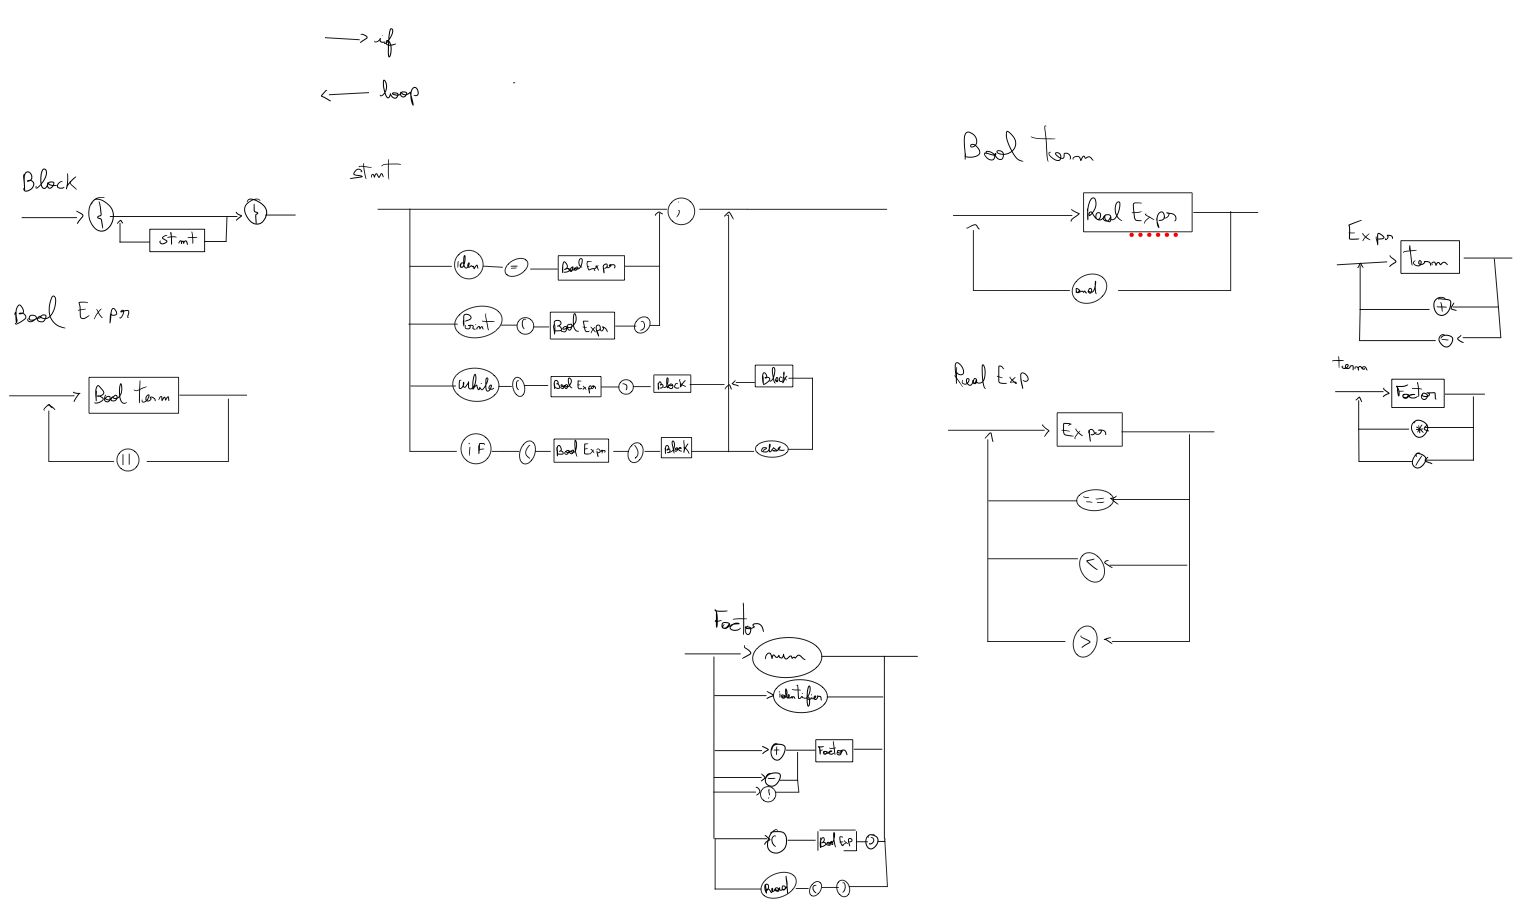 if
loop
Block
{
stmt
}
stmt
;
iden = Bool Expr
Print ( Bool Expr )
while ( Bool Expr ) Block
Block
if ( Bool Expr ) Block
else
Bool Expr
Bool term
||
Bool term
Real Expr
and
Real Exp
Expr
==
<
>
Expr
term
+
-
term
Factor
*
/
Factor
num
identifier
+ Factor
-
!
( Bool Exp )
Read ( )